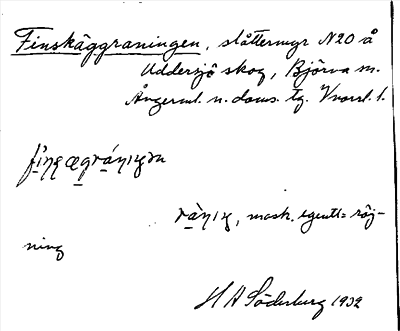 Finskäggraningen, slåttermyr N20 å
Uddersjö skog, Björna sn.
Ångerml. n. doms. tg. Vnorrl. l.
rànıŋ, mask. egentl= röj-
ning
H A Söderberg 1932